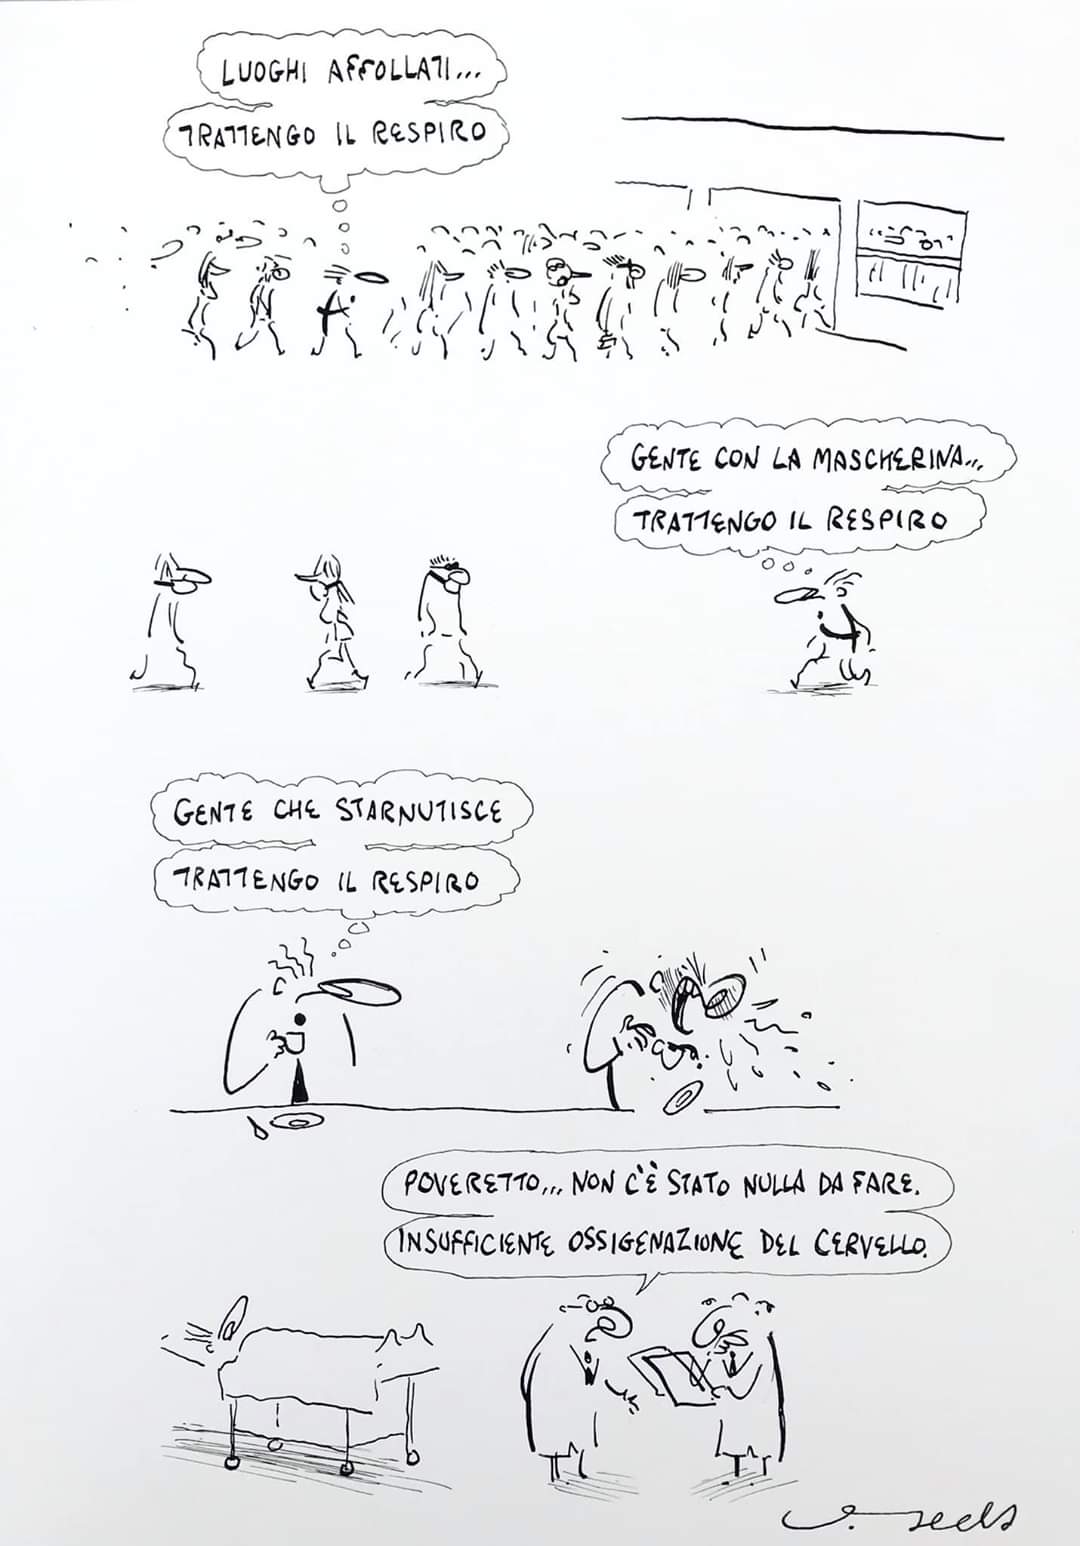 LUOGHI AFFOLLATI...
TRATTENGO IL RESPIRO
GENTE CON LA MASCHERINA...
TRATTENGO IL RESPIRO
GENTE CHE STARNUTISCE
TRATTENGO IL RESPIRO
POVERETTO... NON C'È STATO NULLA DA FARE.
INSUFFICIENTE OSSIGENAZIONE DEL CERVELLO.